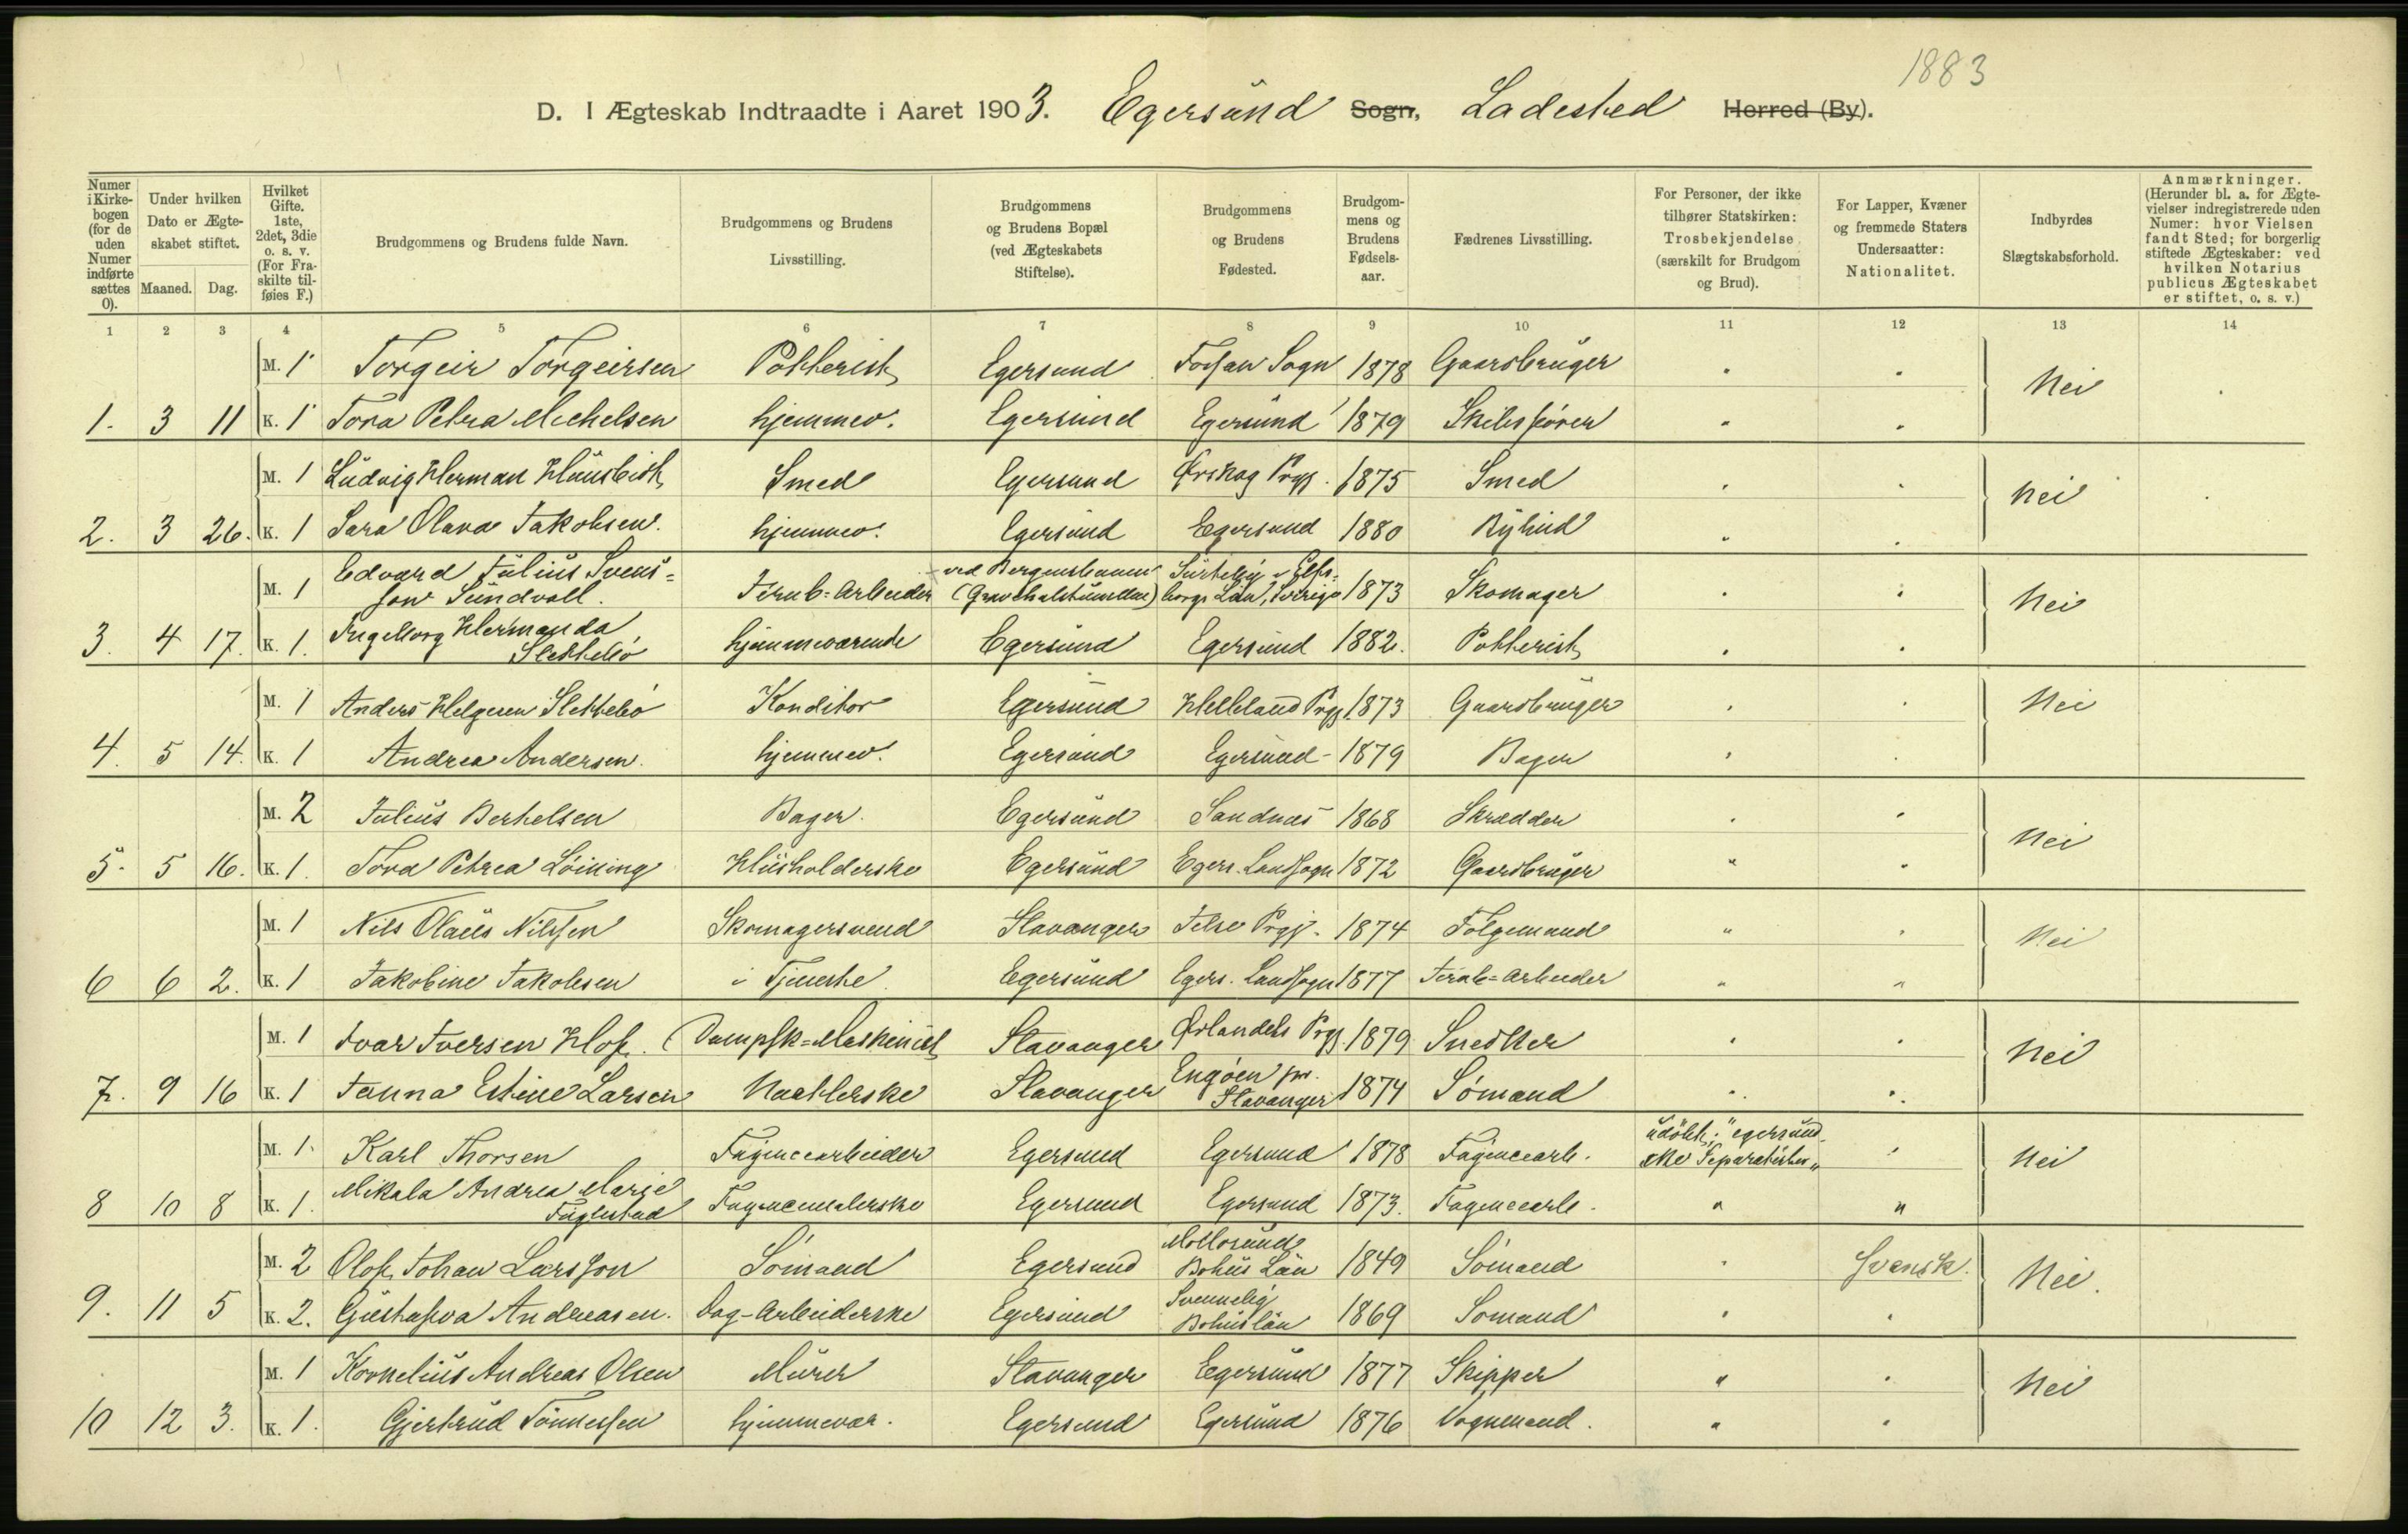 1883
D. I Ægteskab Indtraadte i Aaret 1903. Egersund Sogn, Ladested Herred (By).
Numer i Kirkebogen (for de uden Numer indførte sættes 0).
Under hvilken Dato er Ægteskabet stiftet.
Maaned. Dag.
Hvilket Gifte. 1ste, 2det, 3die o. s. v. (For Fraskilte tilføies F.)
Brudgommens og Brudens fulde Navn.
Brudgommens og Brudens Livsstilling.
Brudgommens og Brudens Bopæl (ved Ægteskabets Stiftelse).
Brudgommens og Brudens Fødested.
Brudgommens og Brudens Fødselsaar.
Fædrenes Livsstilling.
For Personer, der ikke tilhører Statskirken: Trosbekjendelse (særskilt for Brudgom og Brud).
For Lapper, Kvæner og fremmede Staters Undersaatter: Nationalitet.
Indbyrdes Slægtskabsforhold.
Anmærkninger. (Herunder bl. a. for Ægtevielser indregistrerede uden Numer: hvor Vielsen fandt Sted; for borgerlig stiftede Ægteskaber: ved hvilken Notarius publicus Ægteskabet er stiftet, o. s. v.)
1 2 3 4 5 6 7 8 9 10 11 12 13 14
M. 1 Torgeir Torgeirsen Potterist Egersund Fossan Sogn 1878 Gaardbruger " " Nei
1. 3 11 K. 1 Tora Petra Michelsen hjemmev. Egersund Egersund 1879 Skibsfører " "
M. 1 Ludvig Herman Husbish Smed Egersund Ørskog Prgj. 1875 Smed " " Nei
2. 3 26. K. 1 Sara Olava Jakobsen. hjemmev. Egersund Egersund 1880 Bybud " "
M. 1 Edvard Julius Svens=
son Sundvall. Jernb=Arbeider ved Bergensbanen (Gravehalstunellen) Elfsborgs Län, Sverige 1873 Skomager " " Nei
3. 4 17. K. 1. Ingeborg Hermanda
Slettebö hjemmeværende Egersund Egersund 1882. Potterist " "
M. 1 Anders Helgesen Slettebö Konditor Egersund Helleland Prgj. 1873 Gaardbruger " " Nei
4. 5 14. K. 1 Andrea Andersen. hjemmev. Egersund Egersund 1879 Bager " "
M. 2 Julius Berthelsen Bager. Egersund Sandnes 1868 Skrædder " " Nei
5. 5 16. K. 1. Tora Petrea Löining Husholderske Egersund Egers. Landsogn 1872 Gaardbruger " "
M. 1 Nils Olaus Nilssen Skomagersvend Stavanger Jelse Prgj. 1874 Følgemand " " Nei
6 6 2. K. 1 Jakobine Jakobsen i Tjeneste. Egersund Egers. Landsogn 1877 Jernb=Arbeider " "
M. 1 Ivar Iversen Hof. Dampsk=Maskinist Stavanger Ørlandets Prgj. 1879 Snedker " " Nei
7. 9 16 K. 1 Janna Estine Larsen Naatlerske Stavanger Engøen pr. Stavanger 1874 Sømand " "
M. 1 Karl Thorsen Fajancearbeider Egersund Egersund 1878 Fajancearb. udöbt; "egersund-
ske Separatister" " Nei
8 10 8 K. 1. Mikala Andrea Marie
Fuglestad Fajancemalerske Egersund Egersund 1873. Fajancearb. " "
M. 2 Olof Johan Larsson Sömand Egersund Mollösund Bohus Län 1849 Sömand " Svensk. Nei.
9. 11 5 K. 2. Gustafva Andreasen. Dag-Arbeiderske Egersund Bohuslän 1869 Sømand " "
M. 1 Kornelius Andreas Olsen Murer Stavanger Egersund 1877 Skipper " " Nei
10 12 3. K. 1. Gjertrud Tönnessen hjemmevær. Egersund Egersund 1876 Vognmand. " "